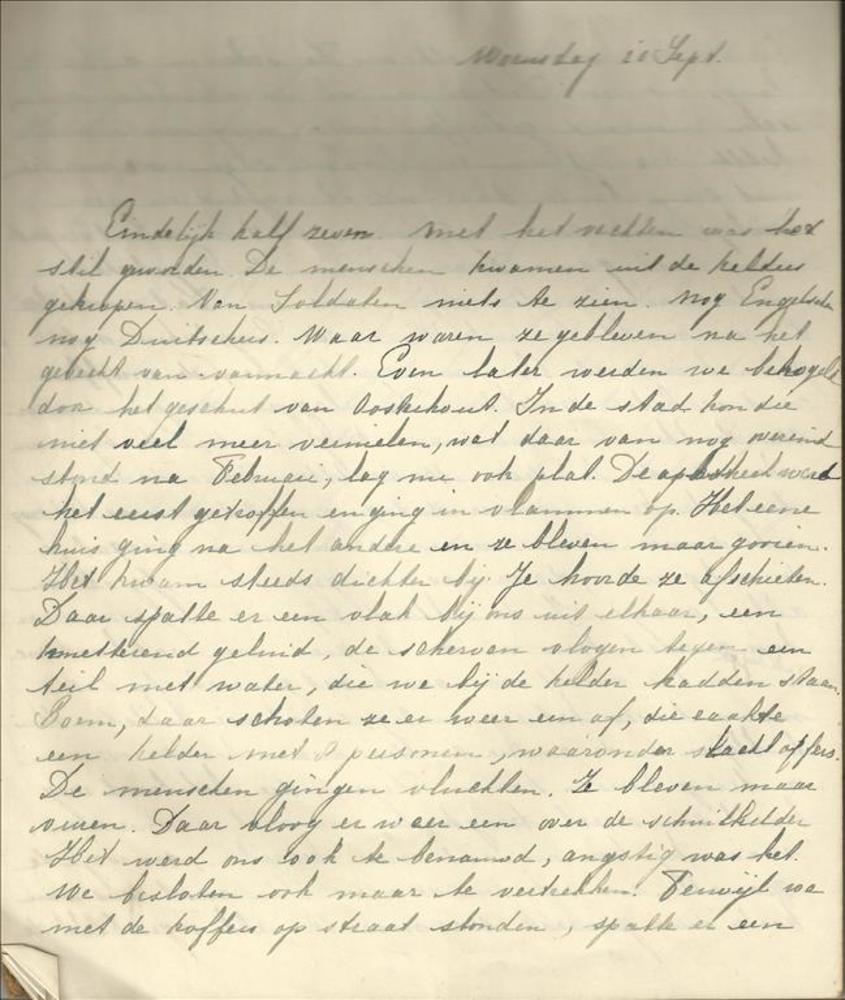 Woensdag 20 Sept.
Eindelijk half zeven. Met het vechten was het
stil geworden. De menschen kwamen uit de kelders
gekropen. Van Soldaten niets te zien. Nog Engelsche
nog Duitschers. Waar waren ze gebleven na het
gevecht van vannacht. Even later werden we bekogeld
door het geschut van Oosterhout. In de stad kon die
niet veel meer vernielen, wat daar van nog overeind
stond na Februari, lag nu ook plat. De apotheek werd
het eerst getroffen en ging in vlammen op. Het eene
huis ging na het andere en ze bleven maar gooien.
Het kwam steeds dichter bij. Je hoorde ze afschieten.
Daar spatte er een vlak bij ons uit elkaar, een
kmetterend geluid, de scherven vlogen tegen een
teil met water, die we bij de kelder hadden staan.
Boem, daar schoten ze er weer een af, die raakte
een kelder met personen, waaronder slachtoffers.
De menschen gingen vluchten. Ze bleven maar
vuren. Daar vloog er weer een over de schuilkelder
Het werd ons ook te benauwd, angstig was het.
We besloten ook maar te vertrekken. Terwijl we
met de koffers op straat stonden, spatte er een